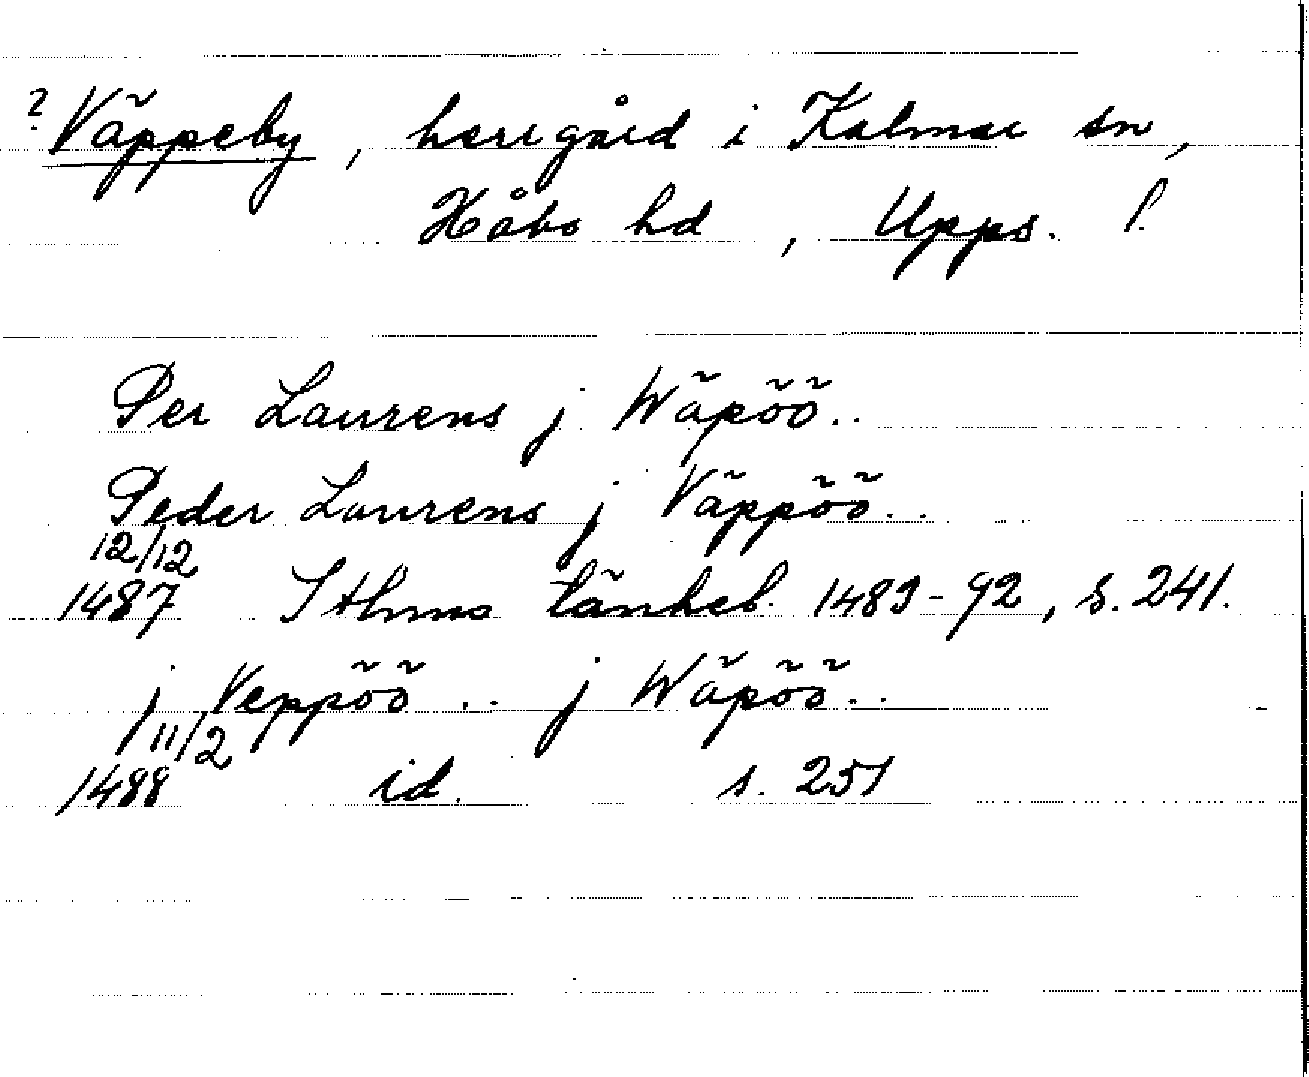 ? Väppeby, herrgård i Kalmar sn,
Håbo hd, Upps. l.
Per Laurens j Wäpöö..
Peder Laurens j Väppöö..
12/12
1487 Sthms tänkeb. 1483-92, s. 241.
j Veppöö .. j Wäpöö..
11/2
1488 id. s. 251